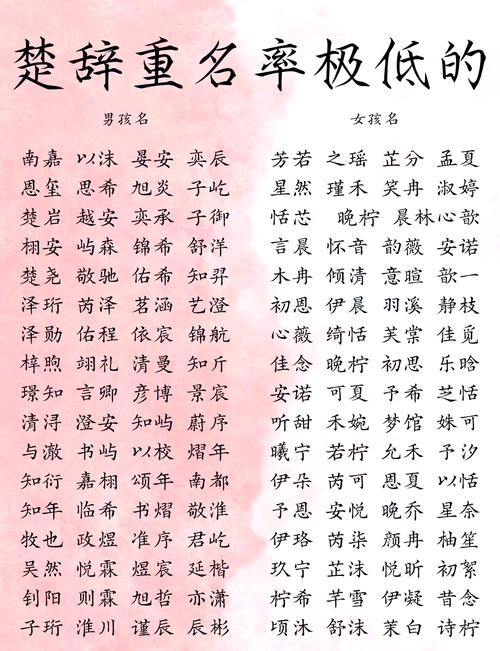 楚辞重名率极低的
男孩名 女孩名
南嘉 以沫 晏安 奕辰 芳若 之瑶 芷分 孟夏
恩玺 思希 旭炎 子屹 星然 瑾禾 笑冉 淑婷
楚岩 越安 奕承 子御 恬芯 晚柠 晨林心歆
栩安 屿森 锦希 舒洋 言晨 怀音 韵薇 安诺
楚尧 敬驰 佑希 知羿 木冉 倾清 意暄 歆一
泽珩 芮泽 茗涵 艺澄 初恩 伊晨 羽溪 静枝
泽勋 佑程 依宸 锦航 心薇 绮恬 芙棠 佳觅
梓煦 翊礼 清曼 知斤 佳念 晚柠 初思 乐晗
璟知 言卿 彦博 景宸 安诺 可夏 予希 芝恬
清浔 澄安 知屿 蔚序 听甜 禾婉 梦馆 姝可
与澈 书屿 以校 熠年 曦宁 若柠 允禾 予汐
知衍 嘉栩 颂年 南都 伊朵 芮可 恩夏 以恬
知年 临希 书熠 敬淮 予恩 安悦 晚乔 星奈
牧也 政煜 准序 君屹 伊珞 芮柒 颜冉 柚笙
吴然 悦霖 煜宸 延楷 玖宁 芷沫 悦昕 初絮
钊阳 则霖 旭哲 亦潇 柠希 芊雪 伊凝 昔念
子珩 淮川 谨辰 辰彬 顷沐 舒沫 茉白 诗柠